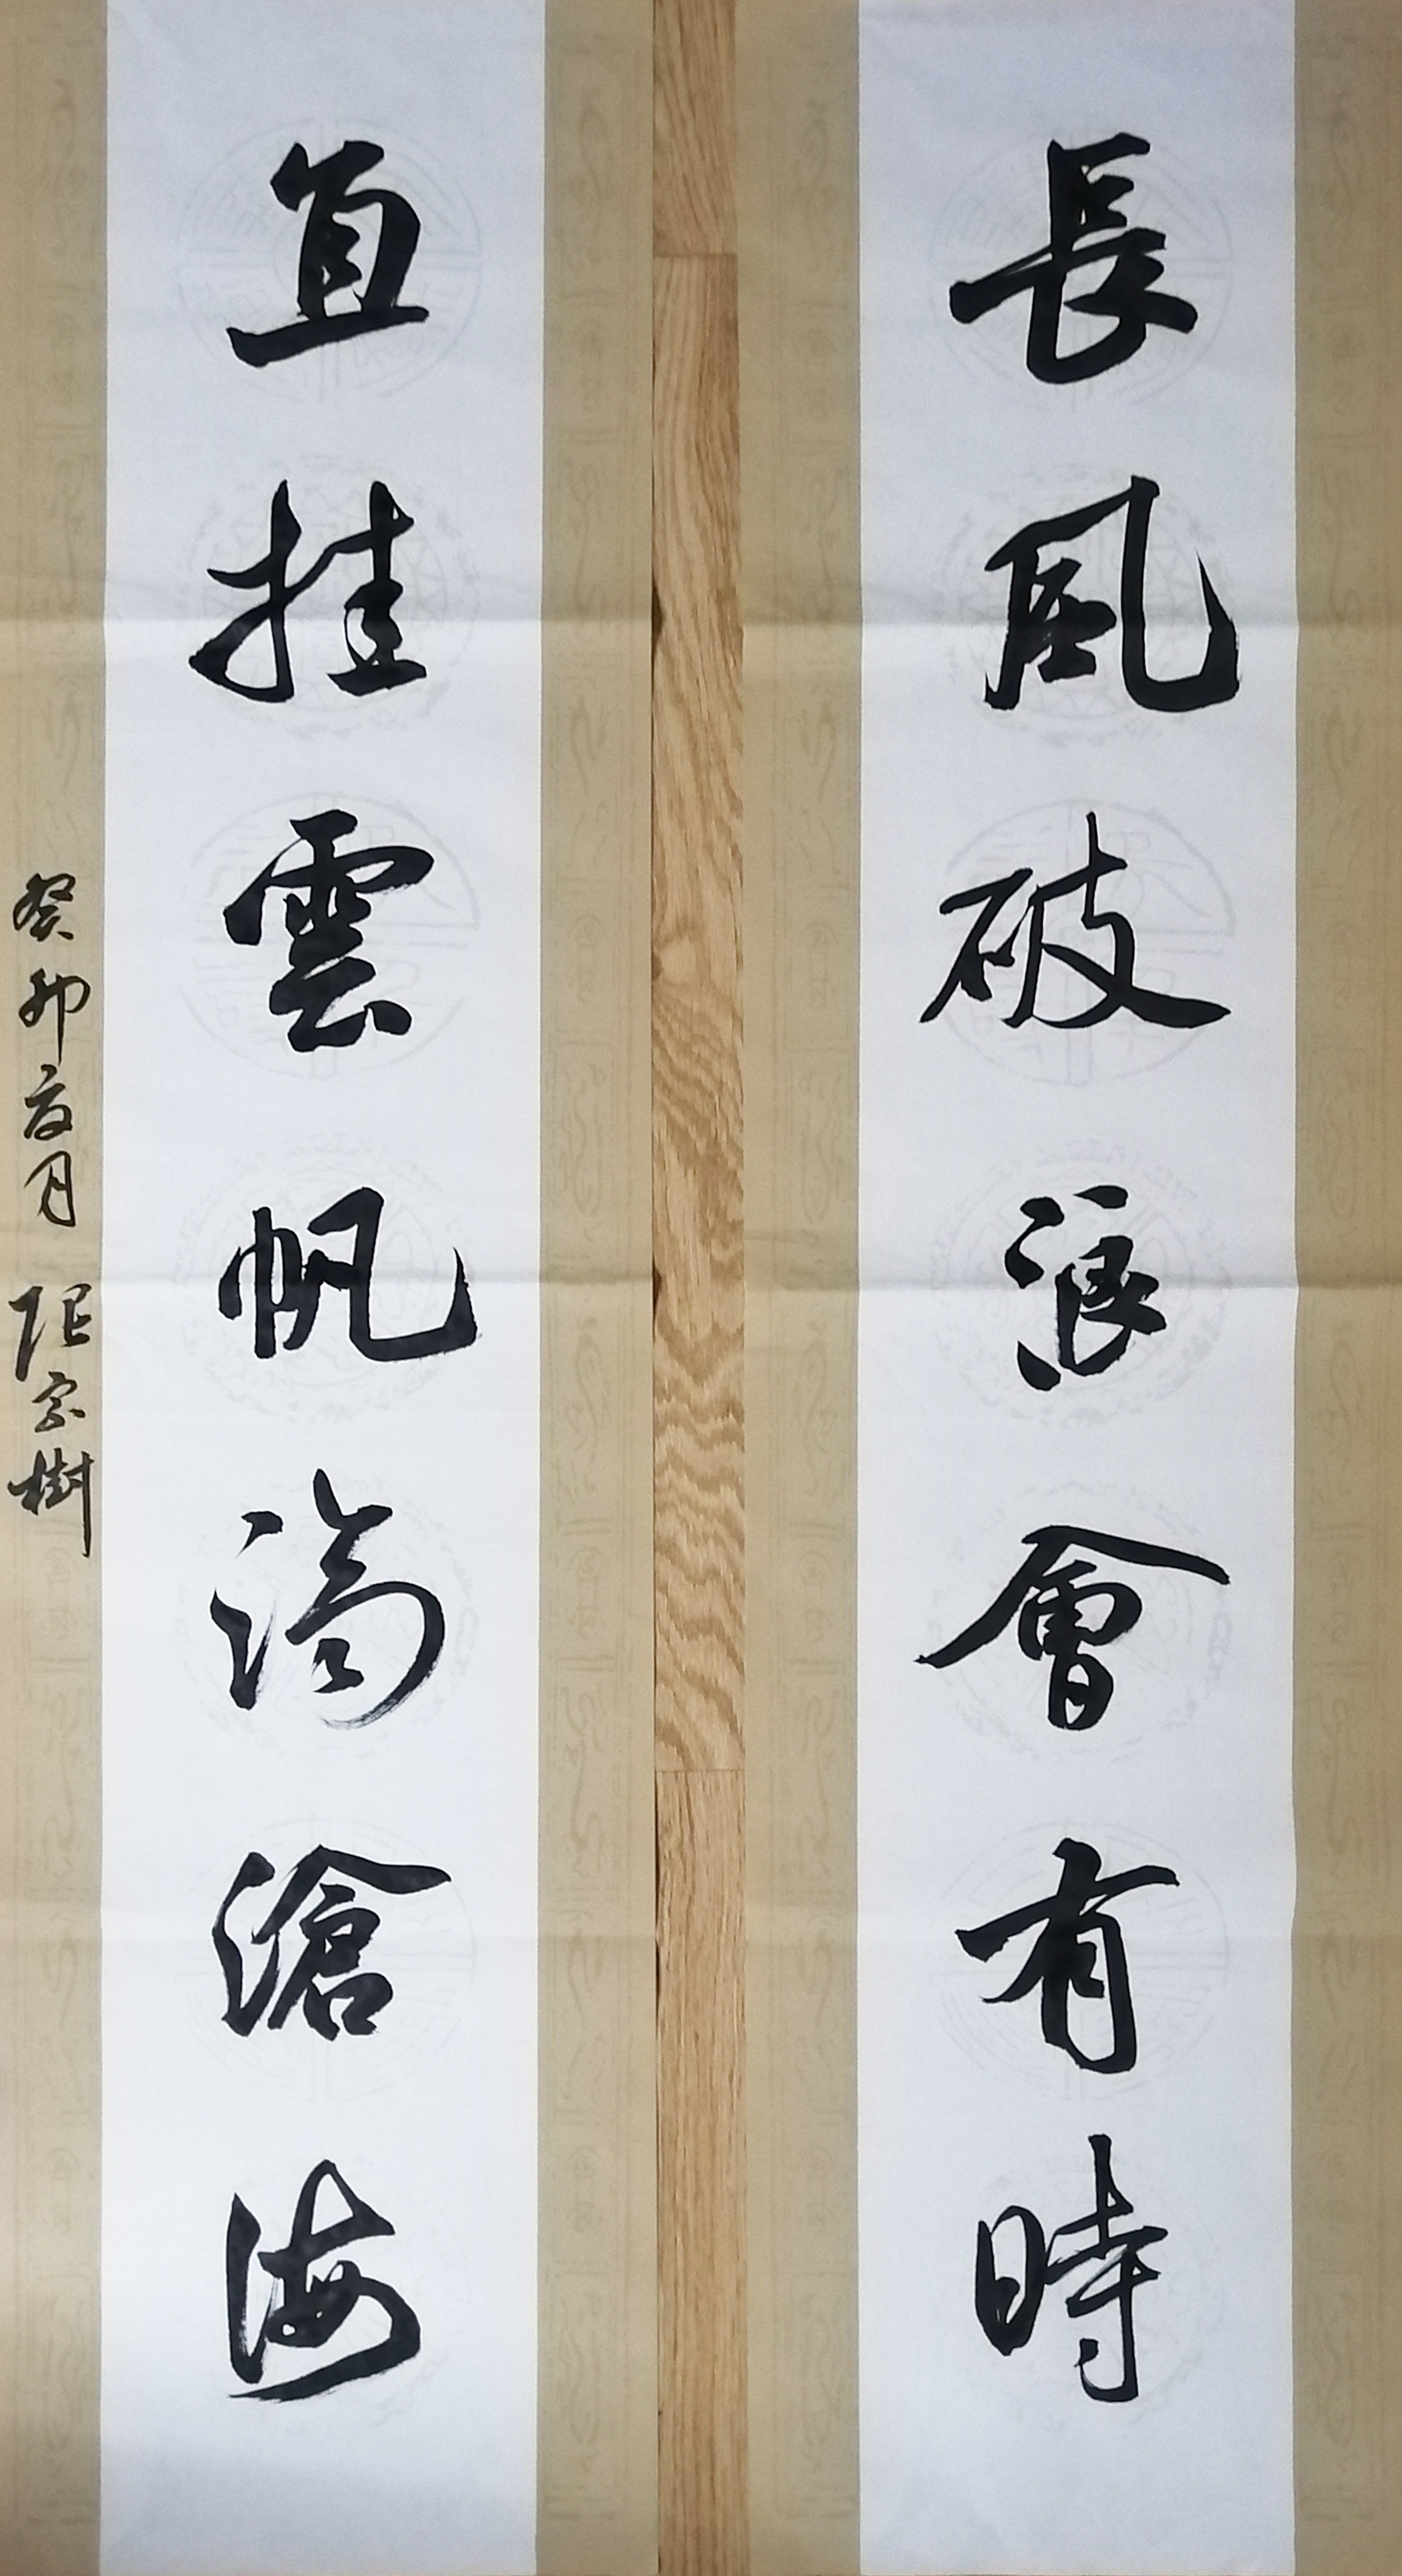 長風破浪會有時
直挂雲帆濟滄海
癸卯夏月 範宗樹